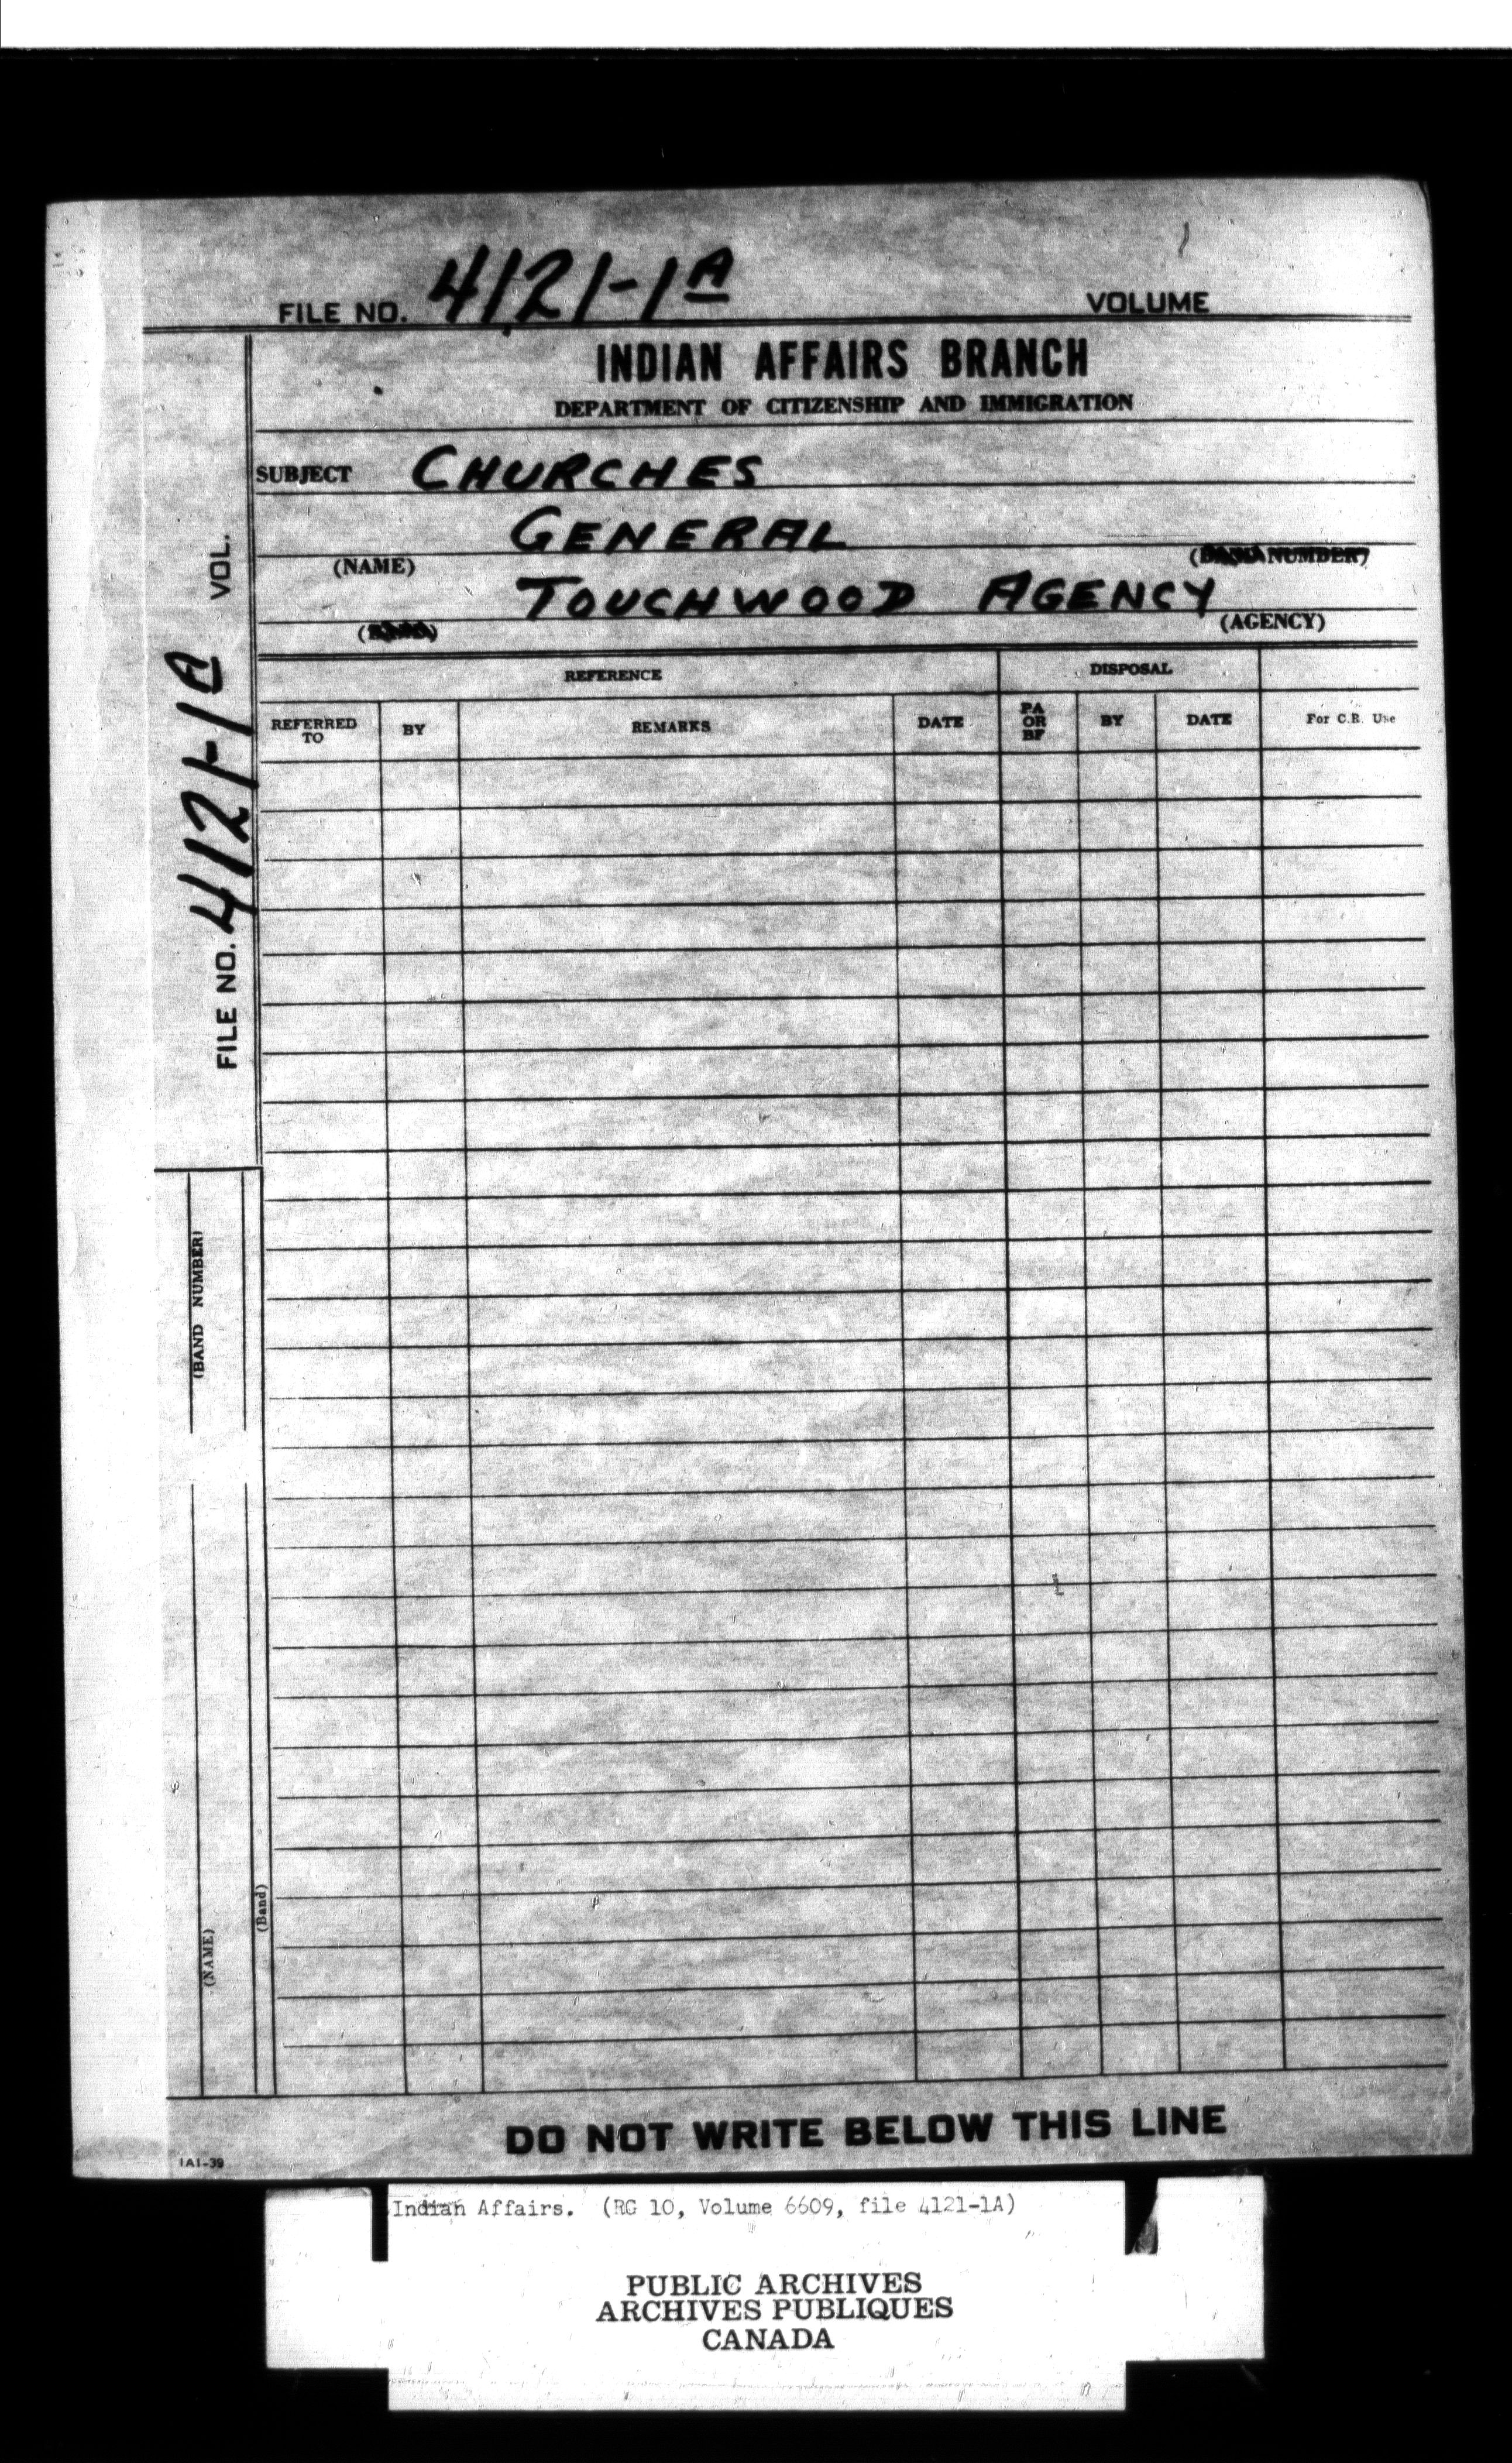 FILE NO. 4121-1A VOLUME
INDIAN AFFAIRS BRANCH
DEPARTMENT OF CITIZENSHIP AND IMMIGRATION
SUBJECT CHURCHES
GENERAL
(NAME) NUMBER)
TOUCHWOOD AGENCY
(AGENCY)
REFERENCE DISPOSAL
REFERRED TO BY REMARKS DATE PA OR BF BY DATE For C.R. Use
FILE NO. 4121-1A VOL.
(BAND NUMBER)
(NAME)
(Band)
DO NOT WRITE BELOW THIS LINE
IA1-39
Indian Affairs. (RG 10, Volume 6609, file 4121-1A)
PUBLIC ARCHIVES
ARCHIVES PUBLIQUES
CANADA